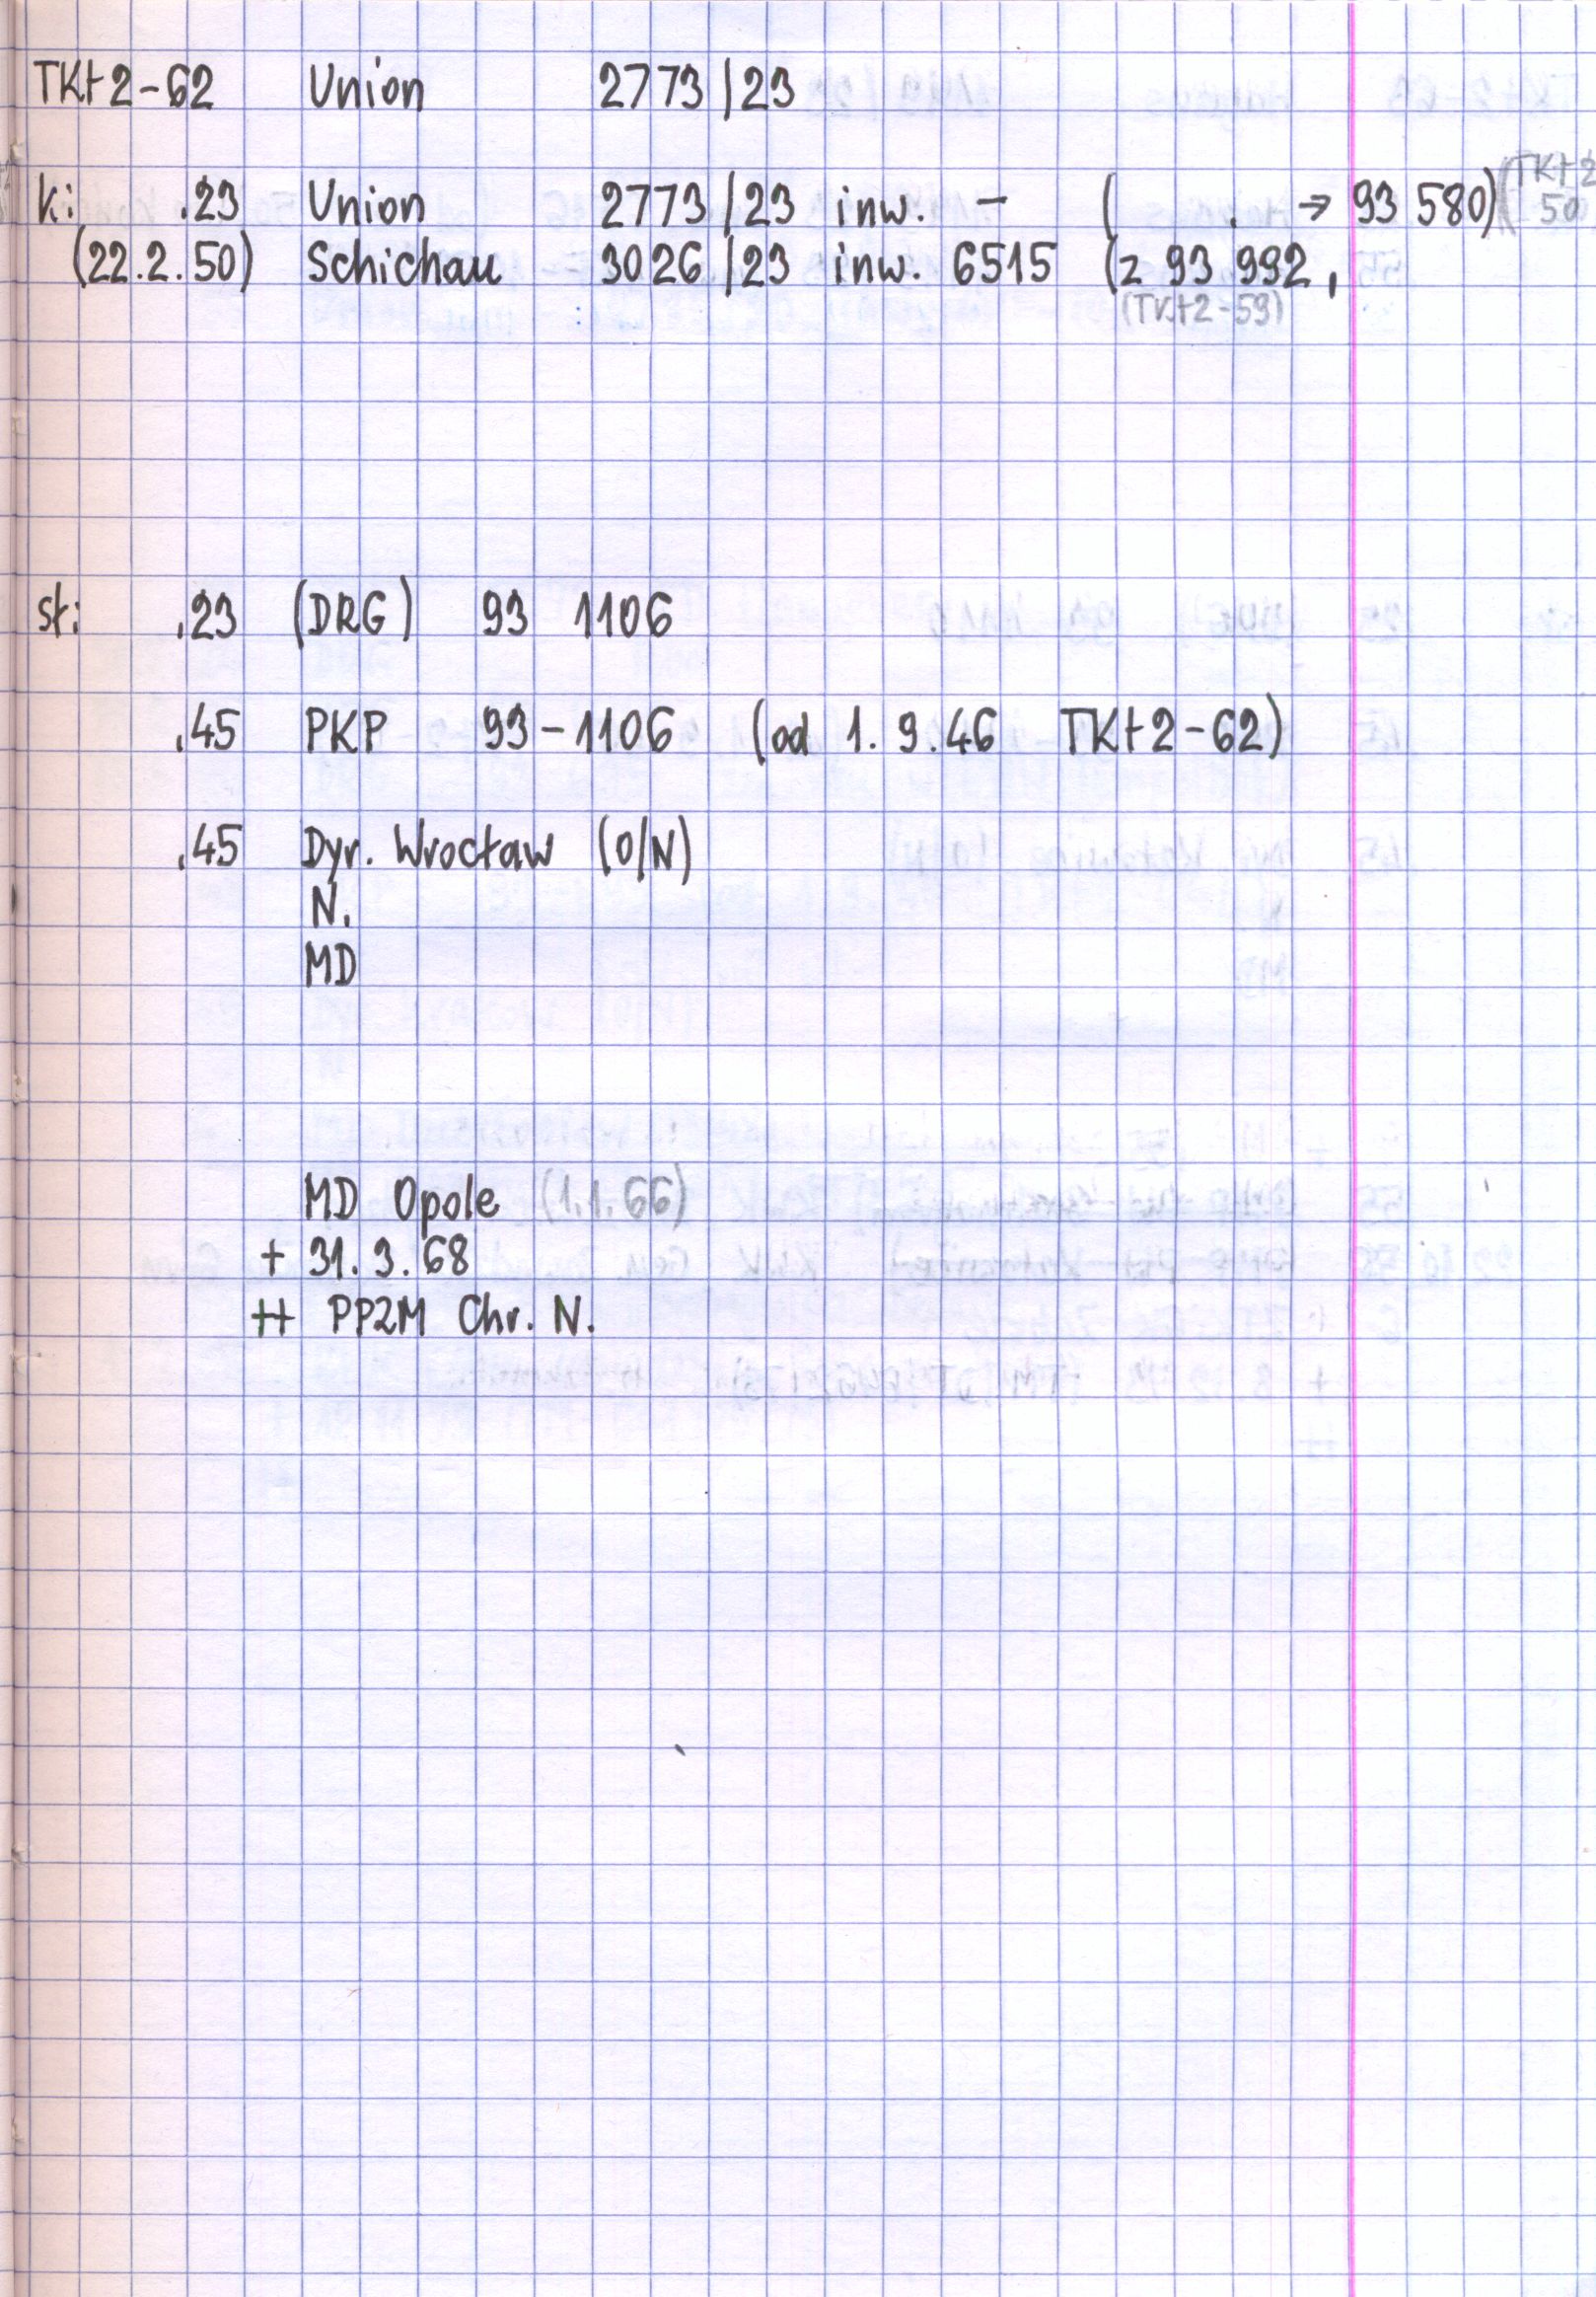 TKt2-62 Union 2773/23
k: .23 Union 2773/23 inw. - ( . → 93 580) (TKt2-50
(22.2.50) Schichau 3026/23 inw. 6515 (z 93 992,
(TKt2-59)
sł: .23 (DRG) 93 1106
.45 PKP 93-1106 (od 1.9.46 TKt2-62)
.45 Dyr. Wrocław (O/N)
N.
MD
MD Opole (1.1.66)
+ 31.3.68
++ PP2M Chr. N.